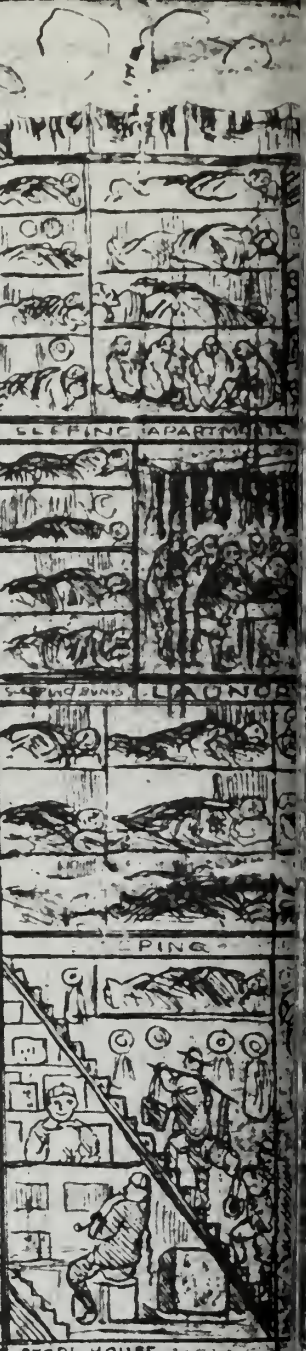 SLEEPING APARTM
SLEEPING BUNKS LAUNDR
PING
HOUSE